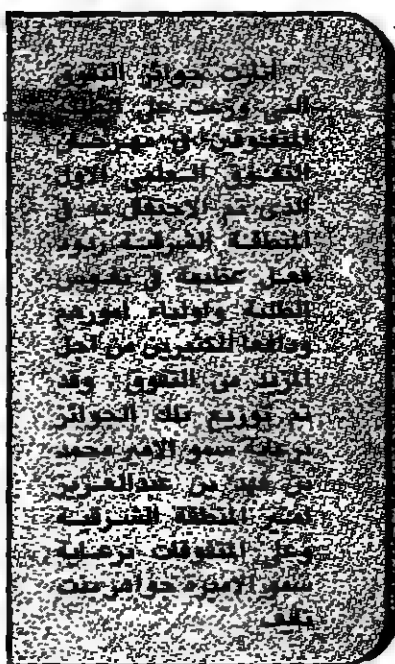 أثارت جوائز التفوق
التي وزعت على الطلبة
المتفوقين في مهرجان
التفوق العلمي الأول
الذي تم الاحتفال به في
المنطقة الشرقية ردود
فعل عظيمة في نفوس
الطلبة وأولياء أمورهم
ودافعا للكثيرين من أجل
المزيد من التفوق . وقد
تم توزيع تلك الجوائز
برعاية سمو الأمير محمد
بن فهد بن عبدالعزيز
أمير المنطقة الشرقية
وعلى المتفوقات برعاية
سمو الأميرة جواهر بنت